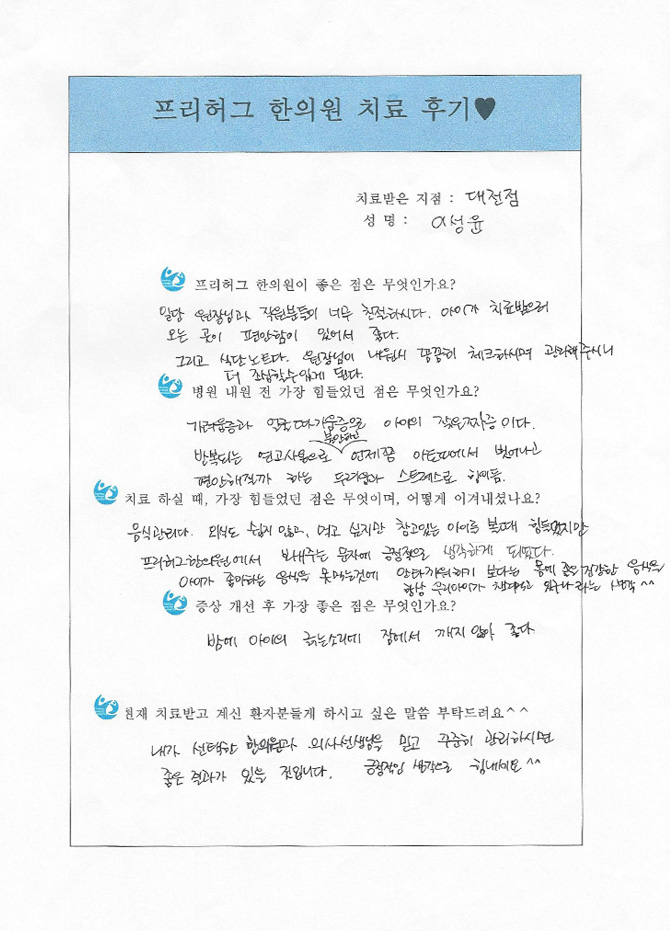 프리허그 한의원 치료 후기♥
치료받은 지점 : 대전점
성 명 : 이성윤
프리허그 한의원이 좋은 점은 무엇인가요?
일단 원장님과 직원분들이 너무 친절하시다. 아이가 치료받으러
오는 곳이 편안함이 있어서 좋다.
그리고 식단노트다. 원장님이 내원시 꼼꼼히 체크하시며 관리해주시니
더 조심할수있게 된다.
병원 내원 전 가장 힘들었던 점은 무엇인가요?
가려움증과 얼굴따가움증으로 아이의 잦은짜증이다.
불안하고
반복되는 연고사용으로 언제쯤 아토피에서 벗어나고
편안해질까 하는 두려움과 스트레스로 힘이듬.
치료 하실 때, 가장 힘들었던 점은 무엇이며, 어떻게 이겨내셨나요?
음식관리다. 외식도 쉽지 않고, 먹고 싶지만 참고있는 아이를 볼때 힘들었지만
프리허그한의원에서 보내주는 문자에 긍정적으로 생각하게 되었다.
아이가 좋아하는 음식을 못먹는것에 안타까워하기 보다는 몸에 좋은 건강한 음식을
항상 우리아이가 먹고 있구나 라는 생각^^
증상 개선 후 가장 좋은 점은 무엇인가요?
밤에 아이의 긁는소리에 잠에서 깨지 않아 좋다
현재 치료받고 계신 환자분들게 하시고 싶은 말씀 부탁드려요^^
내가 선택한 한의원과 의사선생님을 믿고 꾸준히 관리하시면
좋은 결과가 있을 것입니다. 긍정적인 생각으로 힘내세요^^